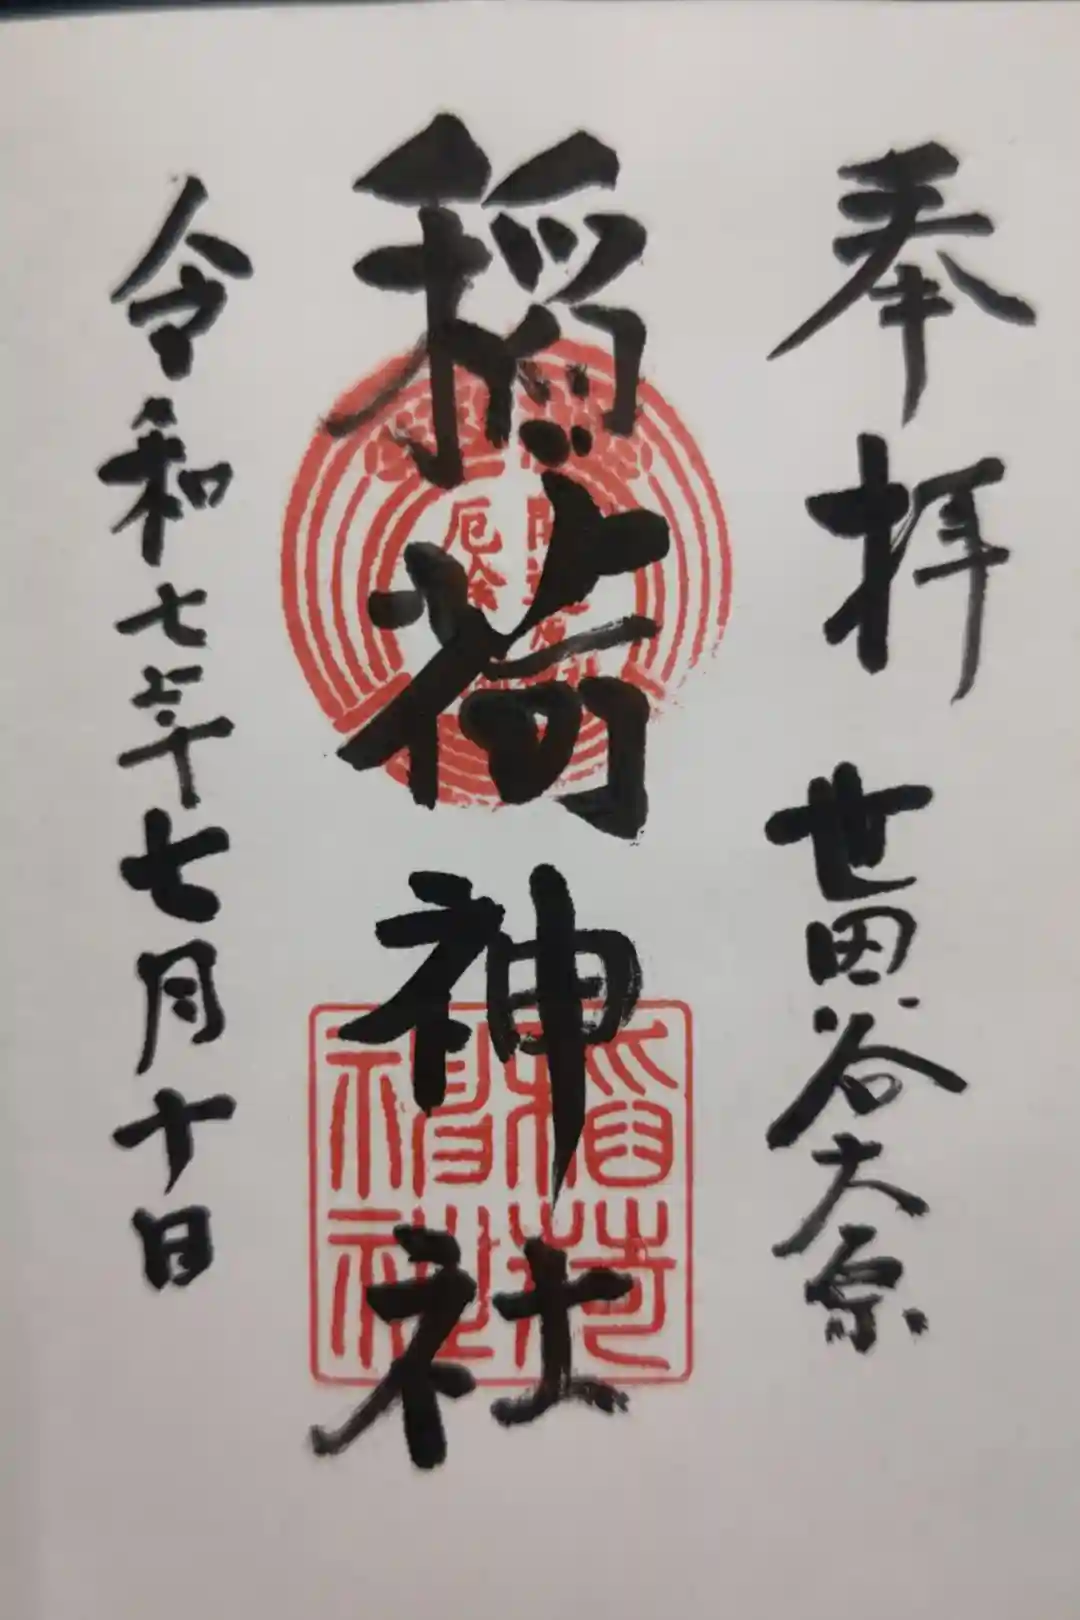 奉拝 世田谷大原
稲荷神社
令和七年七月十日
稲荷神社